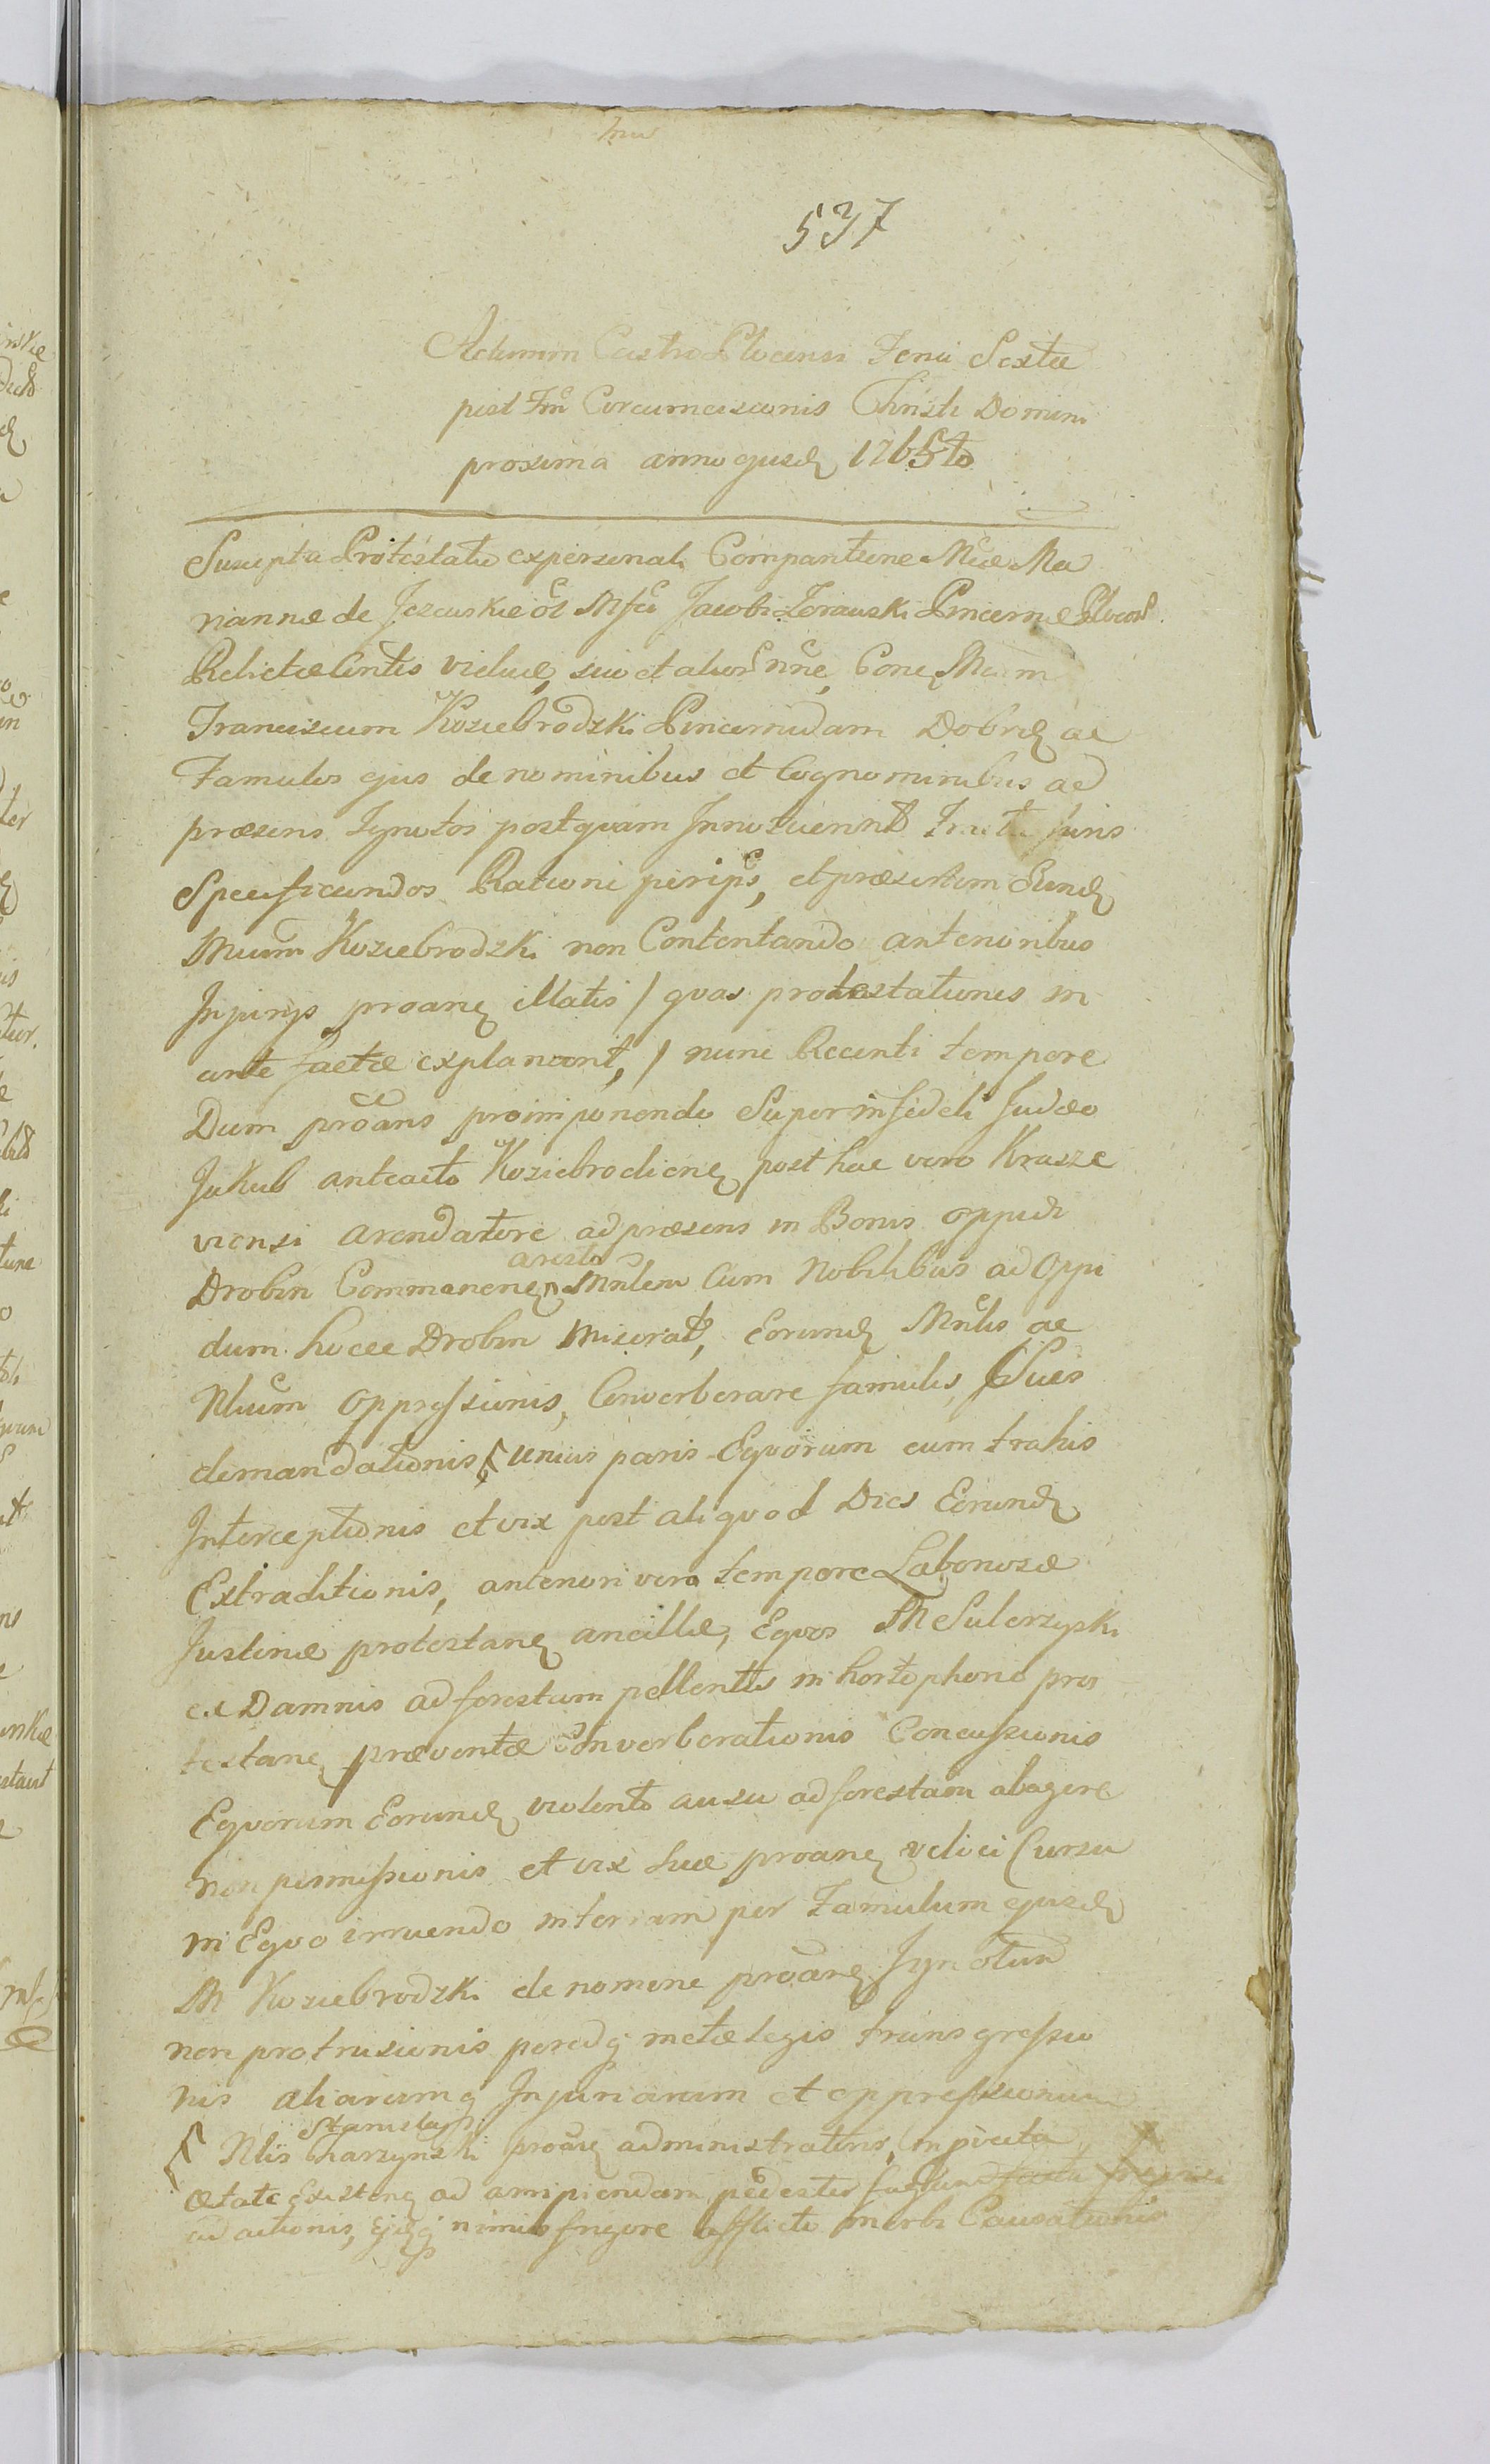 537
Actum in Castro Plocensi Feria Sexta
post Fm Circumcisionis Christi Domini
proxima anno ejusd 1765to
Suscepta Protestatio ex personali Comparitione Mcæ Ma
riannæ de Jezewskie ol Mfci Jacobi Zorawski Pincernæ Plocen
Relictæ Contis viduæ, suo et alior nne, Cone Mum
Franciscum Koziebrodzki Pincernidam Dobrz ac
Famulos ejus de nominibus et Cognominibus ad
præsens Ignotos postquam Innotuerint Tractu juris
Specificandos Rationi per ips, et præsertim Eund
Mcum Koziebrodzki non Contentando anterioribus
Injurys proane illatis / quas protestationes in
ante factæ explanant, / nunc Recenti tempore
Dum proans pro imponendo Super infideli Judæo
Jakub anteacto Koziebrodiene post hac vero Krasze
viensi arendatore ad præsens in Bonis oppidi
Drobin Commanene aresto Mnlem Cum Nobilibus ad Oppi
dum hocce Drobin Miserat, Eorund Mnlis ac
Nlium oppressionis, Converberare famulis Suis
demandationis, unius paris Equorum cum trahis
Interceptionis et vix post aliquod Dies Eorund
Extraditionis, anteriori vero tempore Laboriosæ
Justinæ protestane ancillæ, Equos M Sulerzyski
ex Damnis ad forestam pellentis in horto phono pro
testane præventæ Converberationis Concussionis
Equorum Eorund violento ausu ad forestam abagere
non permissionis et vix suæ proane veloci Cursu
in Equo irruendo in terram per Famulum ejusd
M Koziebrodzki de nomine proane Ignotum
non protrusionis peredq metæ legis transgressio
nis aliarumq Injuriarum et oppressionum
Nlis Stanislai Charzynski proane administratoris, in provecta
ætate Existene ad arripiendam pedester fugam
ad actionis, Ejusq nimio frigore afflicto morbi Causationis